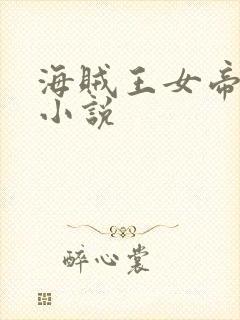 海贼王女帝
小说
醉心裳